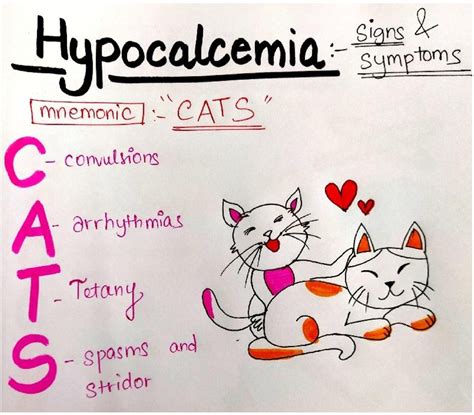 Hypocalcemia:- Signs &
Symptoms
mnemonic :- "CATS"
C - convulsions
A - arrhythmias
T - Tetany
S - spasms and
stridor